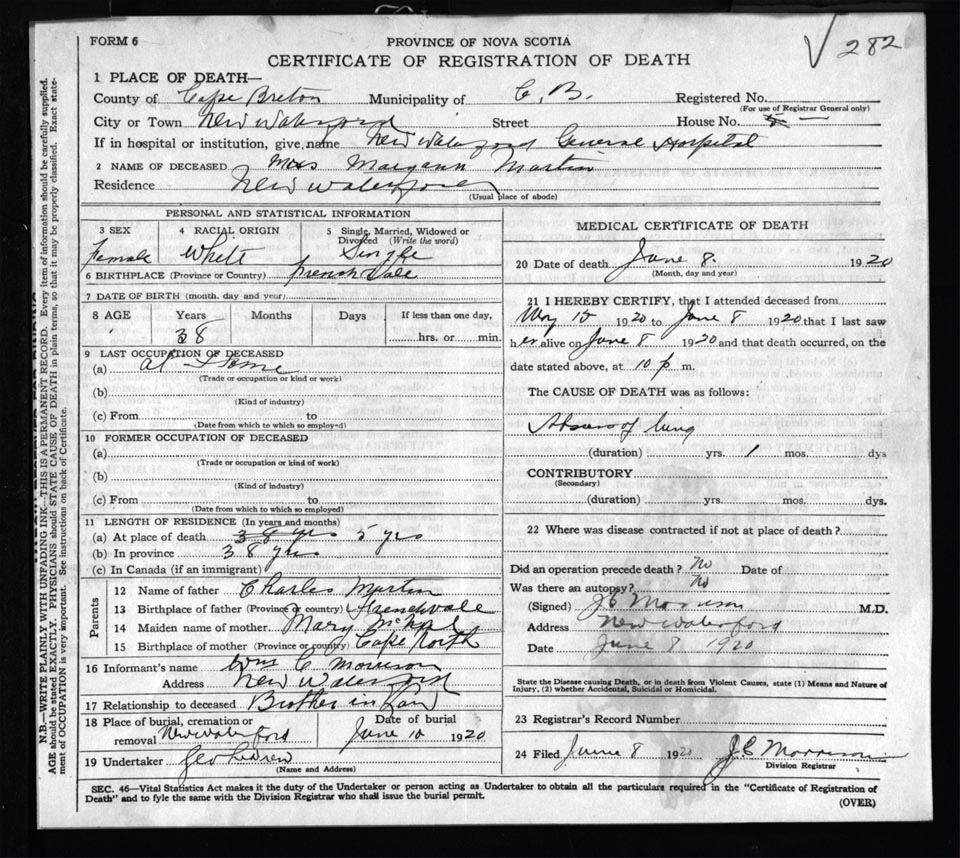 FORM 6
PROVINCE OF NOVA SCOTIA
282
CERTIFICATE OF REGISTRATION OF DEATH
1 PLACE OF DEATH—
County of Cape Breton Municipality of C. B. Registered No.
(For use of Registrar General only)
City or Town New Waterford Street House No. —
If in hospital or institution, give name New Waterford General Hospital
2 NAME OF DECEASED Margann Martin
Residence New Waterford
(Usual place of abode)
PERSONAL AND STATISTICAL INFORMATION
3 SEX 4 RACIAL ORIGIN 5 Single, Married, Widowed or Divorced (Write the word)
Female White Single
6 BIRTHPLACE (Province or Country) French Vale
7 DATE OF BIRTH (month, day and year)
8 AGE Years Months Days If less than one day,
38 hrs. or min.
9 LAST OCCUPATION OF DECEASED
(a) At Home
(Trade or occupation or kind or work)
(b)
(Kind of industry)
(c) From to
(Date from which to which so employed)
10 FORMER OCCUPATION OF DECEASED
(a)
(Trade or occupation or kind of work)
(b)
(Kind of industry)
(c) From to
(Date from which to which so employed)
11 LENGTH OF RESIDENCE (In years and months)
(a) At place of death 38 yrs 5 yrs
(b) In province 38 yrs
(c) In Canada (if an immigrant)
Parents
12 Name of father Charles Martin
13 Birthplace of father (Province or country) Frenchvale
14 Maiden name of mother Mary
15 Birthplace of mother (Province or country) Cape North
16 Informant's name Wm C Morrison
Address New Waterford
17 Relationship to deceased Brother in Law
18 Place of burial, cremation or removal New Waterford Date of burial June 10 1920
19 Undertaker Geo
(Name and Address)
MEDICAL CERTIFICATE OF DEATH
20 Date of death June 8. 1920
(Month, day and year)
21 I HEREBY CERTIFY, that I attended deceased from
May 15 1920 to June 8 1920 that I last saw
her alive on June 8 1920 and that death occurred, on the
date stated above, at 10 p m.
The CAUSE OF DEATH was as follows:
Abscess of lung
(duration) yrs. 1 mos. dys
CONTRIBUTORY
(Secondary)
(duration) yrs. mos. dys.
22 Where was disease contracted if not at place of death?
Did an operation precede death? No Date of
Was there an autopsy? No
(Signed) J C Morrison M.D.
Address New Waterford
Date June 8 1920
State the Disease causing Death, or in death from Violent Causes, state (1) Means and Nature of Injury, (2) whether Accidental, Suicidal or Homicidal.
23 Registrar's Record Number
24 Filed June 8 192 J C Morrison
Division Registrar
SEC. 46—Vital Statistics Act makes it the duty of the Undertaker or person acting as Undertaker to obtain all the particulars required in the "Certificate of Registration of
Death" and to fyle the same with the Division Registrar who shall issue the burial permit.
(OVER)
N.B.—WRITE PLAINLY WITH UNFADING INK—THIS IS A PERMANENT RECORD. Every item of information should be carefully supplied.
AGE should be stated EXACTLY. PHYSICIANS should STATE CAUSE OF DEATH in plain terms, so that it may be properly classified. Exact state-
ment of OCCUPATION is very important. See instructions on back of Certificate.